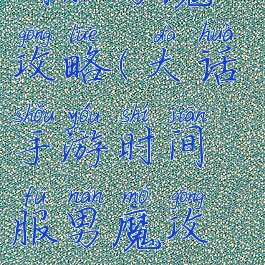 gōng lüè dà huà
攻略(大话
shǒu yóu shí jiān
手游时间
fú nán mó gōng
服男魔攻